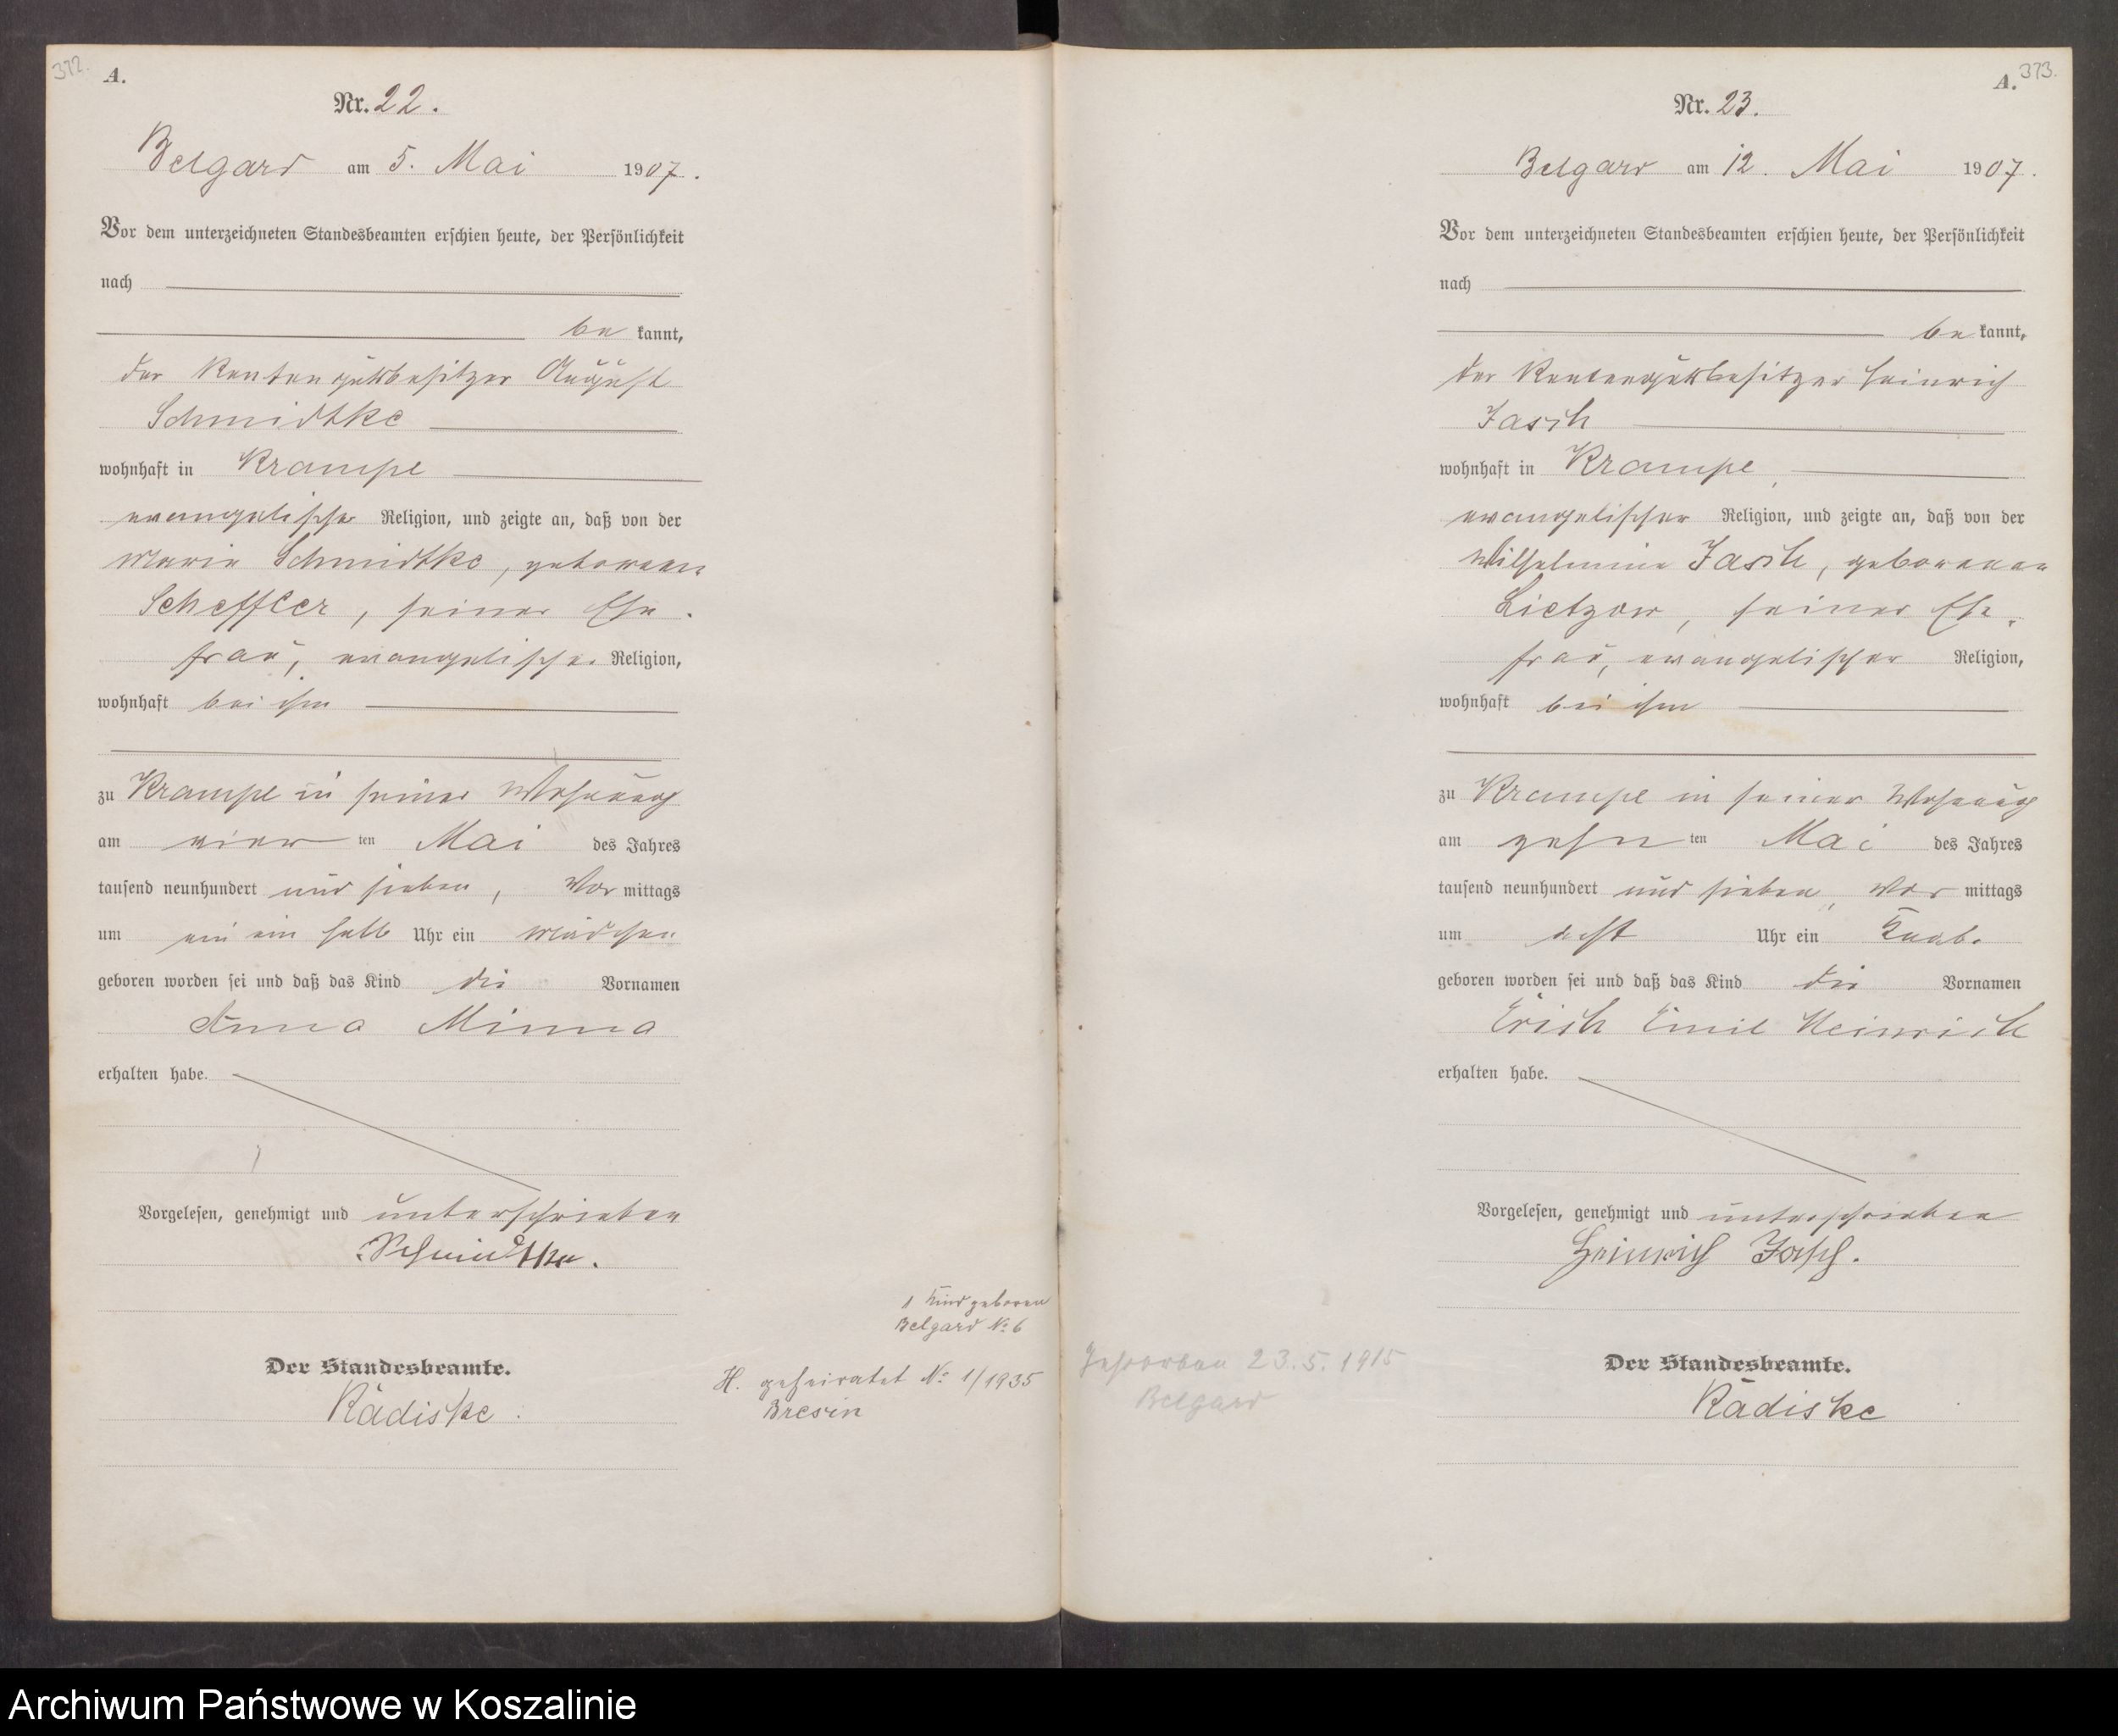 372.
A.
Nr. 22.
Belgard am 5. Mai 1907.
Vor dem unterzeichneten Standesbeamten erschien heute, der Persönlichkeit
nach
be kannt,
der Rentengutsbesitzer August
Schmidtke
wohnhaft in Krampe
evangelischer Religion, und zeigte an, daß von der
Marie Schmidtke, geborenen
Scheffler, seiner Ehe-
frau, evangelischer Religion,
wohnhaft bei ihm
zu Krampe in seiner Wohnung
am vier ten Mai des Jahres
tausend neunhundert und sieben, Vor mittags
um ein ein halb Uhr ein Mädchen
geboren worden sei und daß das Kind die Vornamen
Anna Minna
erhalten habe.
Vorgelesen, genehmigt und unterschrieben
Schmidtke.
Der Standesbeamte.
Rädiske.
1 Kind geboren
Belgard No 6
H. geheiratet No 1/1935
Bresin
373.
A.
Nr. 23.
Belgard am 12. Mai 1907.
Vor dem unterzeichneten Standesbeamten erschien heute, der Persönlichkeit
nach
be kannt,
der Rentengutsbesitzer Heinrich
Jasch
wohnhaft in Krampe,
evangelischer Religion, und zeigte an, daß von der
Wilhelmine Jasch, geborenen
Lietzow, seiner Ehe-
frau, evangelischer Religion,
wohnhaft bei ihm
zu Krampe in seiner Wohnung
am zehn ten Mai des Jahres
tausend neunhundert und sieben, Vor mittags
um acht Uhr ein Knabe
geboren worden sei und daß das Kind die Vornamen
Erich Emil Heinrich
erhalten habe.
Vorgelesen, genehmigt und unterschrieben
Heinrich Jasch.
Der Standesbeamte.
Rädiske
Gestorben 23.5.1915
Belgard
Archiwum Państwowe w Koszalinie